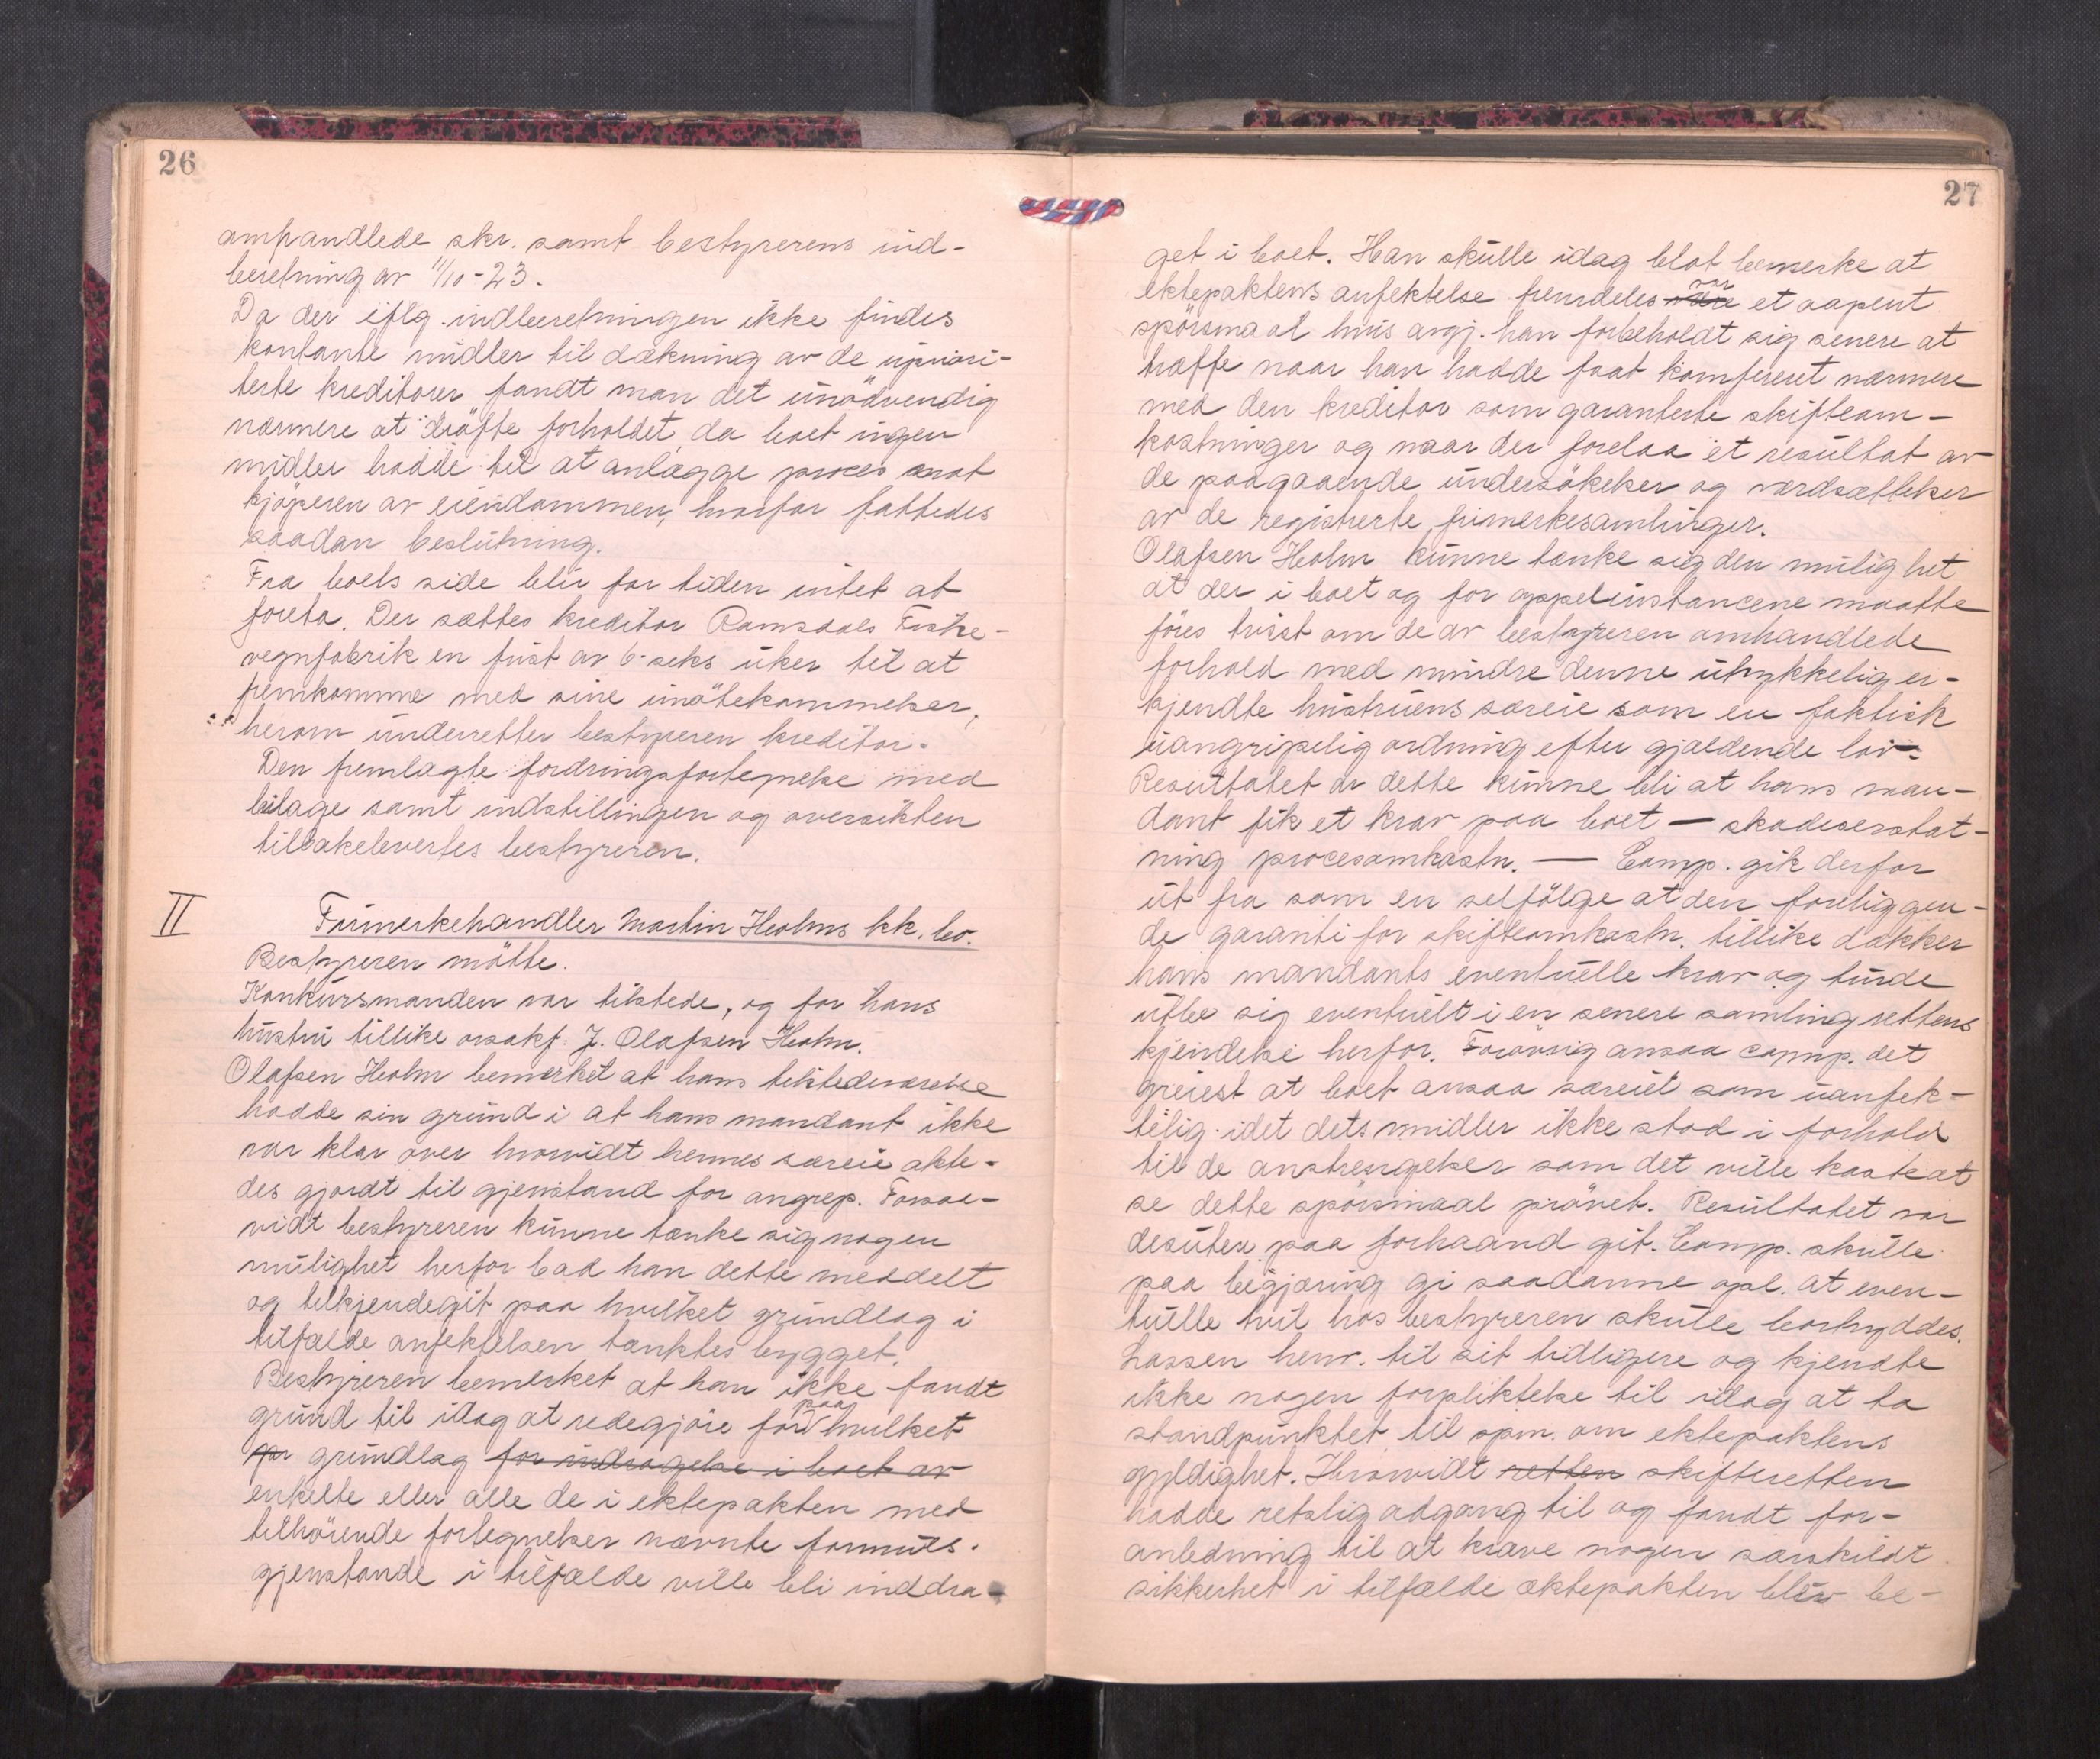 26
omhandlede skr. samt bestyrerens ind-
beretning av 11/10-23.
Da der iflg. indberetningen ikke findes
kontante midler til dækning av de upriori-
terte kreditorer fandt man det unödvendig
nærmere at dröfte forholdet, da boet ingen
midler hadde til at anlægge proces mot
kjöperen av eiendommen, hvorfor fattedes
saadan beslutning.
Fra boets side blir for tiden intet at
foreta. Der sættes kreditor Ramsdals Fiske-
vegnfabrik en frist av 6-seks uker til at
fremkomme med sine imötekommelser,
herom underretter bestyreren kreditor.
Den fremlagte fordringsfortegnelse med
bilage samt indstillingen og oversikten
tilbakelevertes bestyreren.
II Frimerkehandler Martin Holms kk. bo.
Bestyreren mötte.
Konkursmanden var tilstede, og for hans
hustru tillike orsakf. J. Olafsen Holm.
Olafsen Holm bemerket at hans tilstedeværelse
hadde sin grund i at hans mandant ikke
var klar over hvorvidt hennes særeie akte-
des gjordt til gjenstand for angrep. Forsaa-
vidt bestyreren kunne tænke sig nogen
mulighet herfor bad han dette meddelt
og tilkjendegit paa hvilket grundlag i
tilfælde anfektelsen tænktes bygget.
Bestyreren bemerket at han ikke fandt
grund til idag at redegjöre for paa hvilket
for grundlag for indragelse i boet av
enkelte eller alle de i ektepakten med
tilhörende fortegnelser nævnte formues-
gjenstande i tilfælde ville bli inddra-
27
get i boet. Han skulle idag blot bemerke at
ektepaktens anfektelse fremdeles var et aapent
spörsmaal hvis avgj. han forbeholdt sig senere at
træffe naar han hadde faat konfereret nærmere
med den kreditor som garanterte skifteom-
kostninger og naar der forelaa et resultat av
de paagaaende undersökelser og værdsættelser
av de registrerte frimerkesamlinger.
Olafsen Holm kunne tænke sig den mulighet
at der i boet og for appelinstancene maatte
föres tvist om de av bestyreren omhandlede
forhold med mindre denne utrykkelig er-
kjendte hustruens særeie som en faktisk
uangripelig ordning efter gjældende lov.
Resultatet av dette kunne bli at hans man-
dant fik et krav paa boet — skadeserstat-
ning procesomkostn. — Comp. gik derfor
ut fra som en selfölge at den foreliggen-
de garanti for skifteomkostn. tillike dækker
hans mandants eventuelle krav og turde
utbe sig eventuelt i en senere samling rettens
kjendelse herfor. Forövrig ansaa comp. det
greiest at boet ansaa særeiet som uanfek-
telig idet dets midler ikke stod i forhold
til de anstrengelser som det ville koste at
se dette spörsmaal prövet. Resultatet var
desuten paa forhaand git. Comp. skulle
paa begjæring gi saadanne opl. at even-
tuelle tvil hos bestyreren skulle bortryddes.
Lassen henv. til sit tidligere og kjendte
ikke nogen forpliktelse til idag at ta
standpunktet til spm. om ektepaktens
gyldighet. Hvorvidt retten skifteretten
hadde retslig adgang til og fandt for-
anledning til at kræve nogen særskildt
sikkerhet i tilfælde ektepakten blev be-